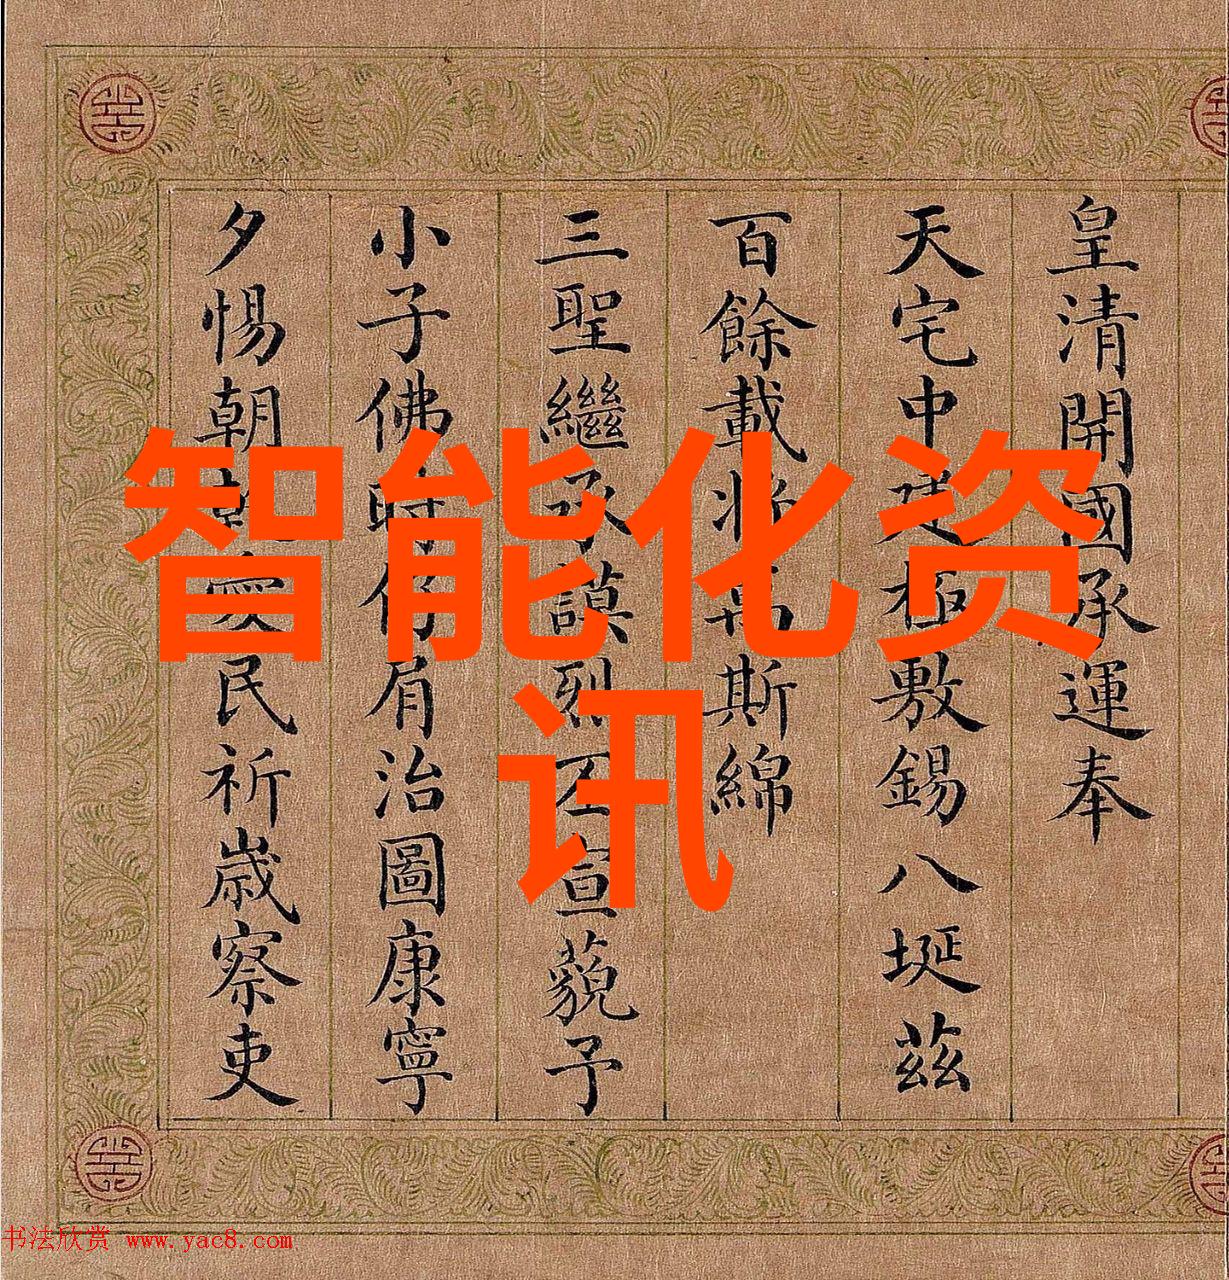 皇清開國承運奉
天宅中建極敷錫八埏茲
百餘載將萬斯綿
三聖繼承謨烈丕宣藐予
小子佛時仔肩治圖康寧
夕惕朝乾愛民祈歲察吏
智能化资
讯
书法欣赏 www.yac8.com